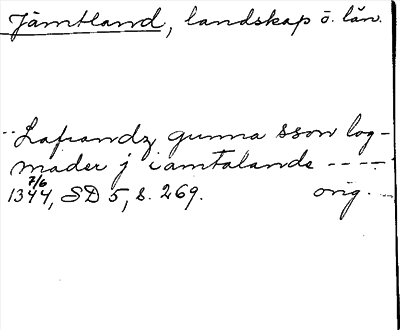 Jämtland, landskap o. län.
-- Lafrandz gunna sson log-
mader j iamtalande ----
7/6
1344, SD 5, s. 269. orig.